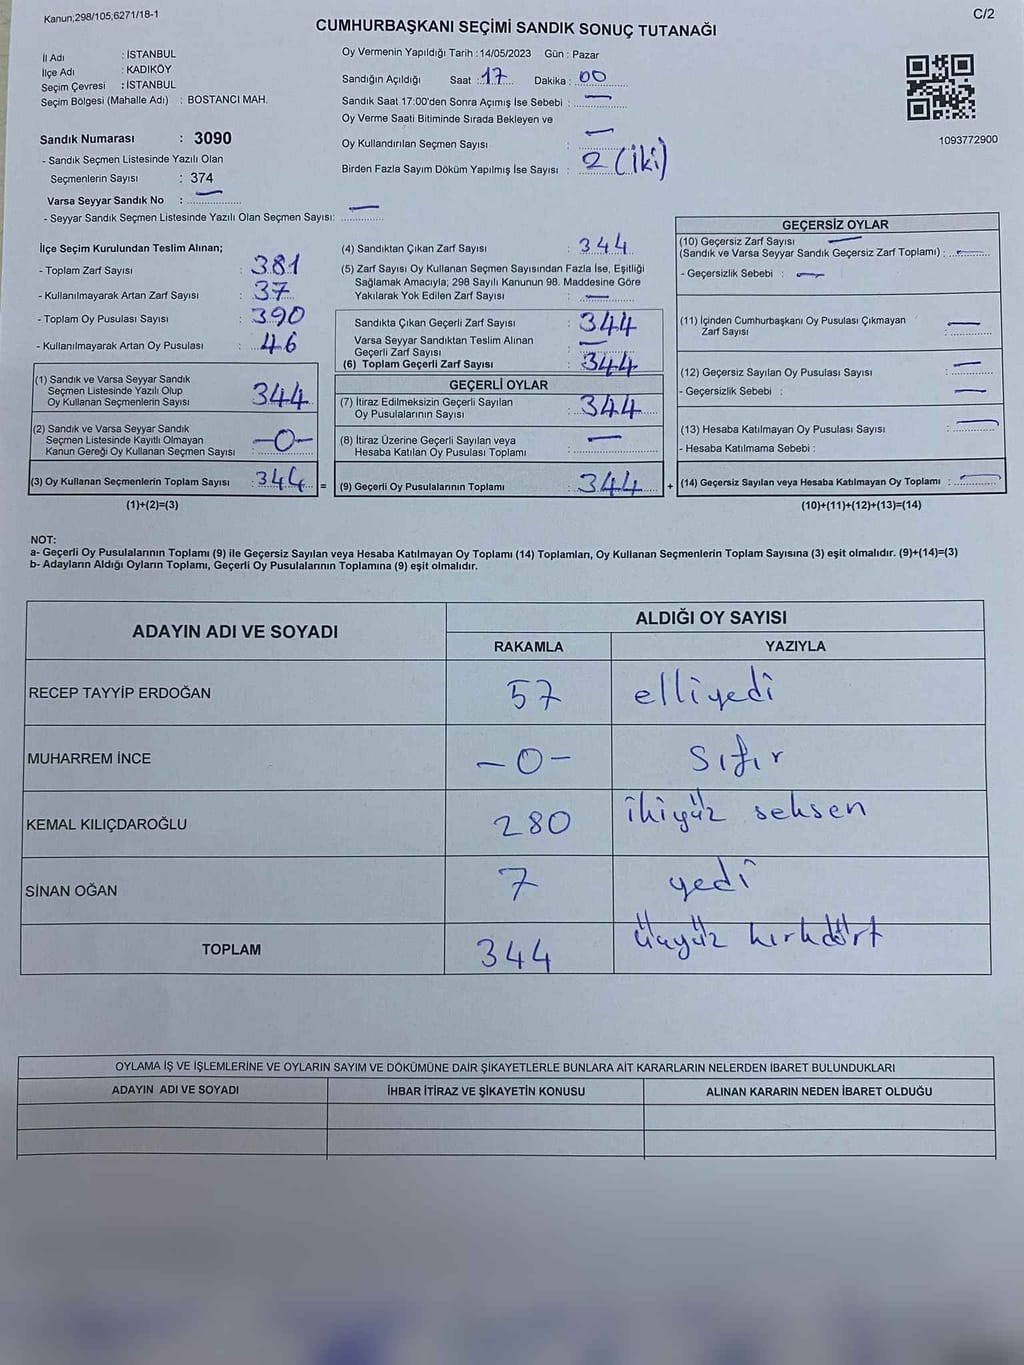 Kanun;298/105;6271/18-1
C/2
CUMHURBAŞKANI SEÇİMİ SANDIK SONUÇ TUTANAĞI
İl Adı : İSTANBUL
İlçe Adı : KADIKÖY
Seçim Çevresi : İSTANBUL
Seçim Bölgesi (Mahalle Adı) : BOSTANCI MAH.
Sandık Numarası : 3090
- Sandık Seçmen Listesinde Yazılı Olan
Seçmenlerin Sayısı : 374
Varsa Seyyar Sandık No : —
- Seyyar Sandık Seçmen Listesinde Yazılı Olan Seçmen Sayısı: —
Oy Vermenin Yapıldığı Tarih : 14/05/2023 Gün : Pazar
Sandığın Açıldığı Saat : 17 Dakika : 00
Sandık Saat 17:00'den Sonra Açımış İse Sebebi : —
Oy Verme Saati Bitiminde Sırada Bekleyen ve
Oy Kullandırılan Seçmen Sayısı : —
Birden Fazla Sayım Döküm Yapılmış İse Sayısı : 2 (iki)
1093772900
İlçe Seçim Kurulundan Teslim Alınan;
- Toplam Zarf Sayısı : 381
- Kullanılmayarak Artan Zarf Sayısı : 37
- Toplam Oy Pusulası Sayısı : 390
- Kullanılmayarak Artan Oy Pusulası : 46
(1) Sandık ve Varsa Seyyar Sandık
Seçmen Listesinde Yazılı Olup
Oy Kullanan Seçmenlerin Sayısı : 344
(2) Sandık ve Varsa Seyyar Sandık
Seçmen Listesinde Kayıtlı Olmayan
Kanun Gereği Oy Kullanan Seçmen Sayısı : —0—
(3) Oy Kullanan Seçmenlerin Toplam Sayısı : 344 =
(1)+(2)=(3)
(4) Sandıktan Çıkan Zarf Sayısı : 344
(5) Zarf Sayısı Oy Kullanan Seçmen Sayısından Fazla İse, Eşitliği
Sağlamak Amacıyla; 298 Sayılı Kanunun 98. Maddesine Göre
Yakılarak Yok Edilen Zarf Sayısı : —
Sandıkta Çıkan Geçerli Zarf Sayısı : 344
Varsa Seyyar Sandıktan Teslim Alınan
Geçerli Zarf Sayısı : —
(6) Toplam Geçerli Zarf Sayısı : 344
GEÇERLİ OYLAR
(7) İtiraz Edilmeksizin Geçerli Sayılan
Oy Pusulalarının Sayısı : 344
(8) İtiraz Üzerine Geçerli Sayılan veya
Hesaba Katılan Oy Pusulası Toplamı : —
(9) Geçerli Oy Pusulalarının Toplamı : 344 +
GEÇERSİZ OYLAR
(10) Geçersiz Zarf Sayısı —
(Sandık ve Varsa Seyyar Sandık Geçersiz Zarf Toplamı) : —
- Geçersizlik Sebebi : —
(11) İçinden Cumhurbaşkanı Oy Pusulası Çıkmayan
Zarf Sayısı : —
(12) Geçersiz Sayılan Oy Pusulası Sayısı : —
- Geçersizlik Sebebi : —
(13) Hesaba Katılmayan Oy Pusulası Sayısı : —
- Hesaba Katılmama Sebebi :
(14) Geçersiz Sayılan veya Hesaba Katılmayan Oy Toplamı : —
(10)+(11)+(12)+(13)=(14)
NOT:
a- Geçerli Oy Pusulalarının Toplamı (9) ile Geçersiz Sayılan veya Hesaba Katılmayan Oy Toplamı (14) Toplamları, Oy Kullanan Seçmenlerin Toplam Sayısına (3) eşit olmalıdır. (9)+(14)=(3)
b- Adayların Aldığı Oyların Toplamı, Geçerli Oy Pusulalarının Toplamına (9) eşit olmalıdır.
ADAYIN ADI VE SOYADI
ALDIĞI OY SAYISI
RAKAMLA YAZIYLA
RECEP TAYYİP ERDOĞAN 57 elliyedi
MUHARREM İNCE —0— sıfır
KEMAL KILIÇDAROĞLU 280 ikiyüz seksen
SİNAN OĞAN 7 yedi
TOPLAM 344 üçyüz kırkdört
OYLAMA İŞ VE İŞLEMLERİNE VE OYLARIN SAYIM VE DÖKÜMÜNE DAİR ŞİKAYETLERLE BUNLARA AİT KARARLARIN NELERDEN İBARET BULUNDUKLARI
ADAYIN ADI VE SOYADI İHBAR İTİRAZ VE ŞİKAYETİN KONUSU ALINAN KARARIN NEDEN İBARET OLDUĞU